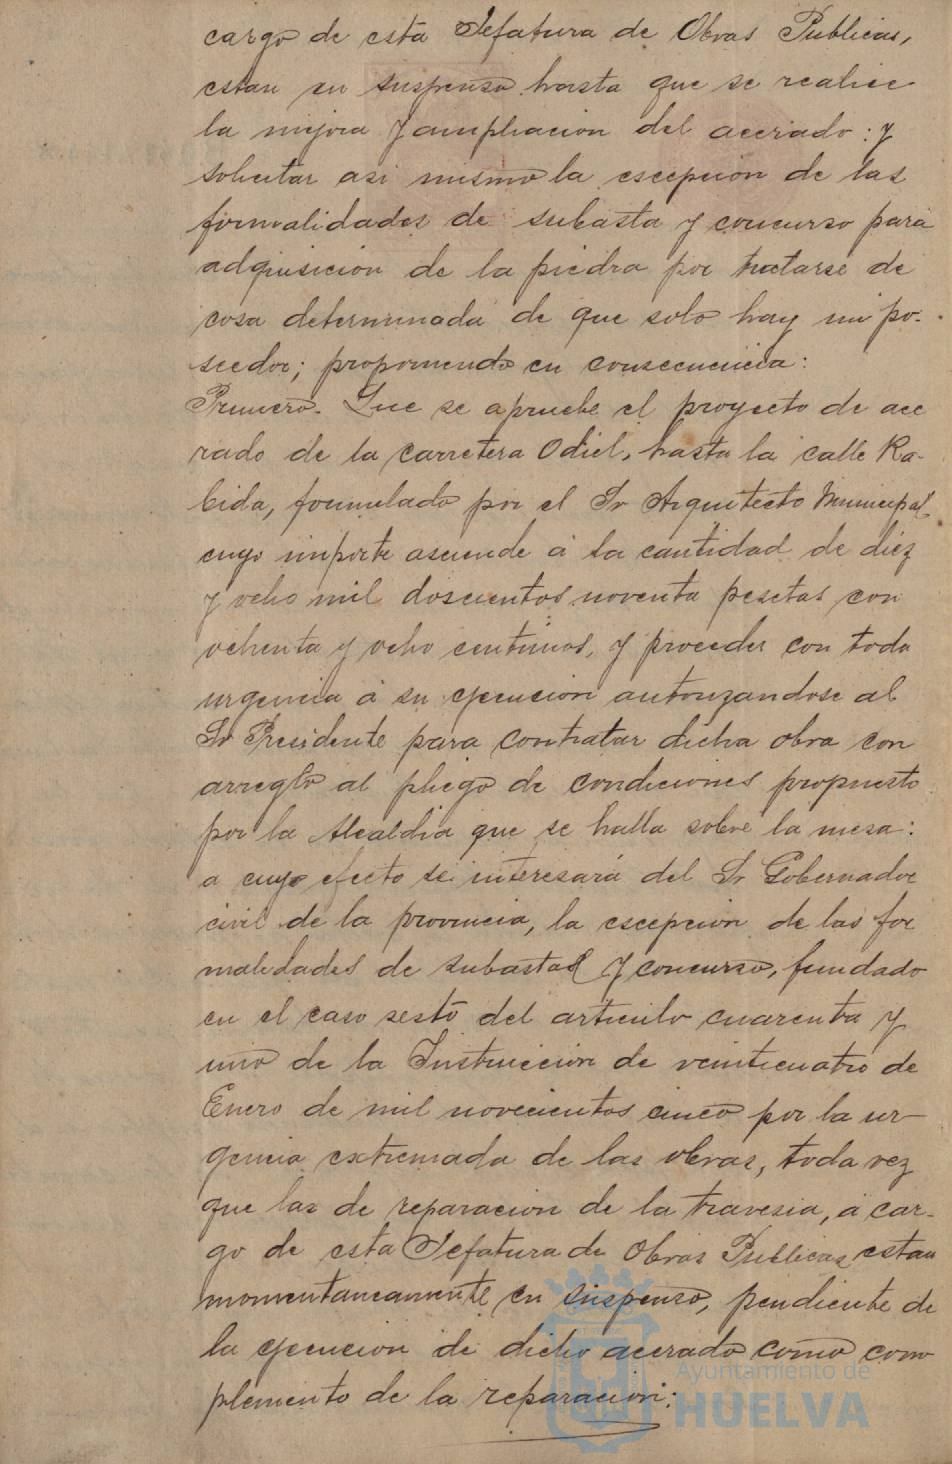 cargo de esta Jefatura de Obras Publicas,
estan en suspenso hasta que se realice
la mejora y ampliacion del acerado: y
solicitar asi mismo la escepcion de las
formalidades de subasta y concurso para
adquisicion de la piedra por tratarse de
cosa determinada de que solo hay un po-
seedor; proponiendo en consecuencia:
Primero. Que se apruebe el proyecto de ace
rado de la carretera Odiel, hasta la calle Ra-
bida, formulado por el Sr Arquitecto Municipal
cuyo importe asciende á la cantidad de diez
y ocho mil doscientos noventa pesetas con
ochenta y ocho centimos, y proceder con toda
urgencia á su ejecucion autorizandose al
Sr Presidente para contratar dicha obra con
arreglo al pliego de condiciones propuesto
por la Alcaldia que se halla sobre la mesa:
a cuyo efecto se interesará del Sr Gobernador
civil de la provincia, la escepcion de las for
malidades de subastas y concurso, fundado
en el caso sesto del articulo cuarenta y
uno de la Instruccion de veinticuatro de
Enero de mil novecientos cinco por la ur-
gencia extremada de las obras, toda vez
que las de reparacion de la travesia, á car-
go de esta Jefatura de Obras Publicas estan
momentaneamente en suspenso, pendiente de
la ejecucion de dicho acerado como com
plemento de la reparacion:
Ayuntamiento de
HUELVA